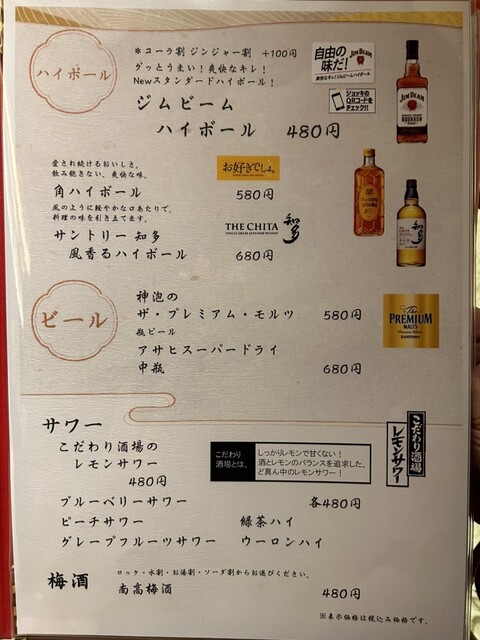 ハイボール
＊コーラ割 ジンジャー割 +100円
グッとうまい！爽快なキレ！
Newスタンダードハイボール！
ジムビーム
ハイボール 480円
自由の味だ！
JIM BEAM
爽快なキレ！ジムビームハイボール
ジョッキの
QRコードを
チェック!!
JIM BEAM
BOURBON
愛され続けるおいしさ。
飲み飽きない、爽快な味。
角ハイボール 580円
お好きでしょ。
風のように軽やかな口あたりで、
料理の味を引き立てます。
サントリー 知多
風香るハイボール 680円
THE CHITA
SINGLE GRAIN JAPANESE WHISKY
知多
ビール
神泡の
ザ・プレミアム・モルツ 580円
瓶ビール
アサヒスーパードライ
中瓶 680円
The
PREMIUM
MALT'S
SUNTORY
サワー
こだわり酒場の
レモンサワー
480円
こだわり
酒場とは、
しっかりレモンで甘くない！
酒とレモンのバランスを追求した、
ど真ん中のレモンサワー！
こだわり酒場
レモンサワー
ブルーベリーサワー 各480円
ピーチサワー 緑茶ハイ
グレープフルーツサワー ウーロンハイ
梅酒
ロック・水割・お湯割・ソーダ割からお選びください。
南高梅酒 480円
※表示価格は税込み価格です。